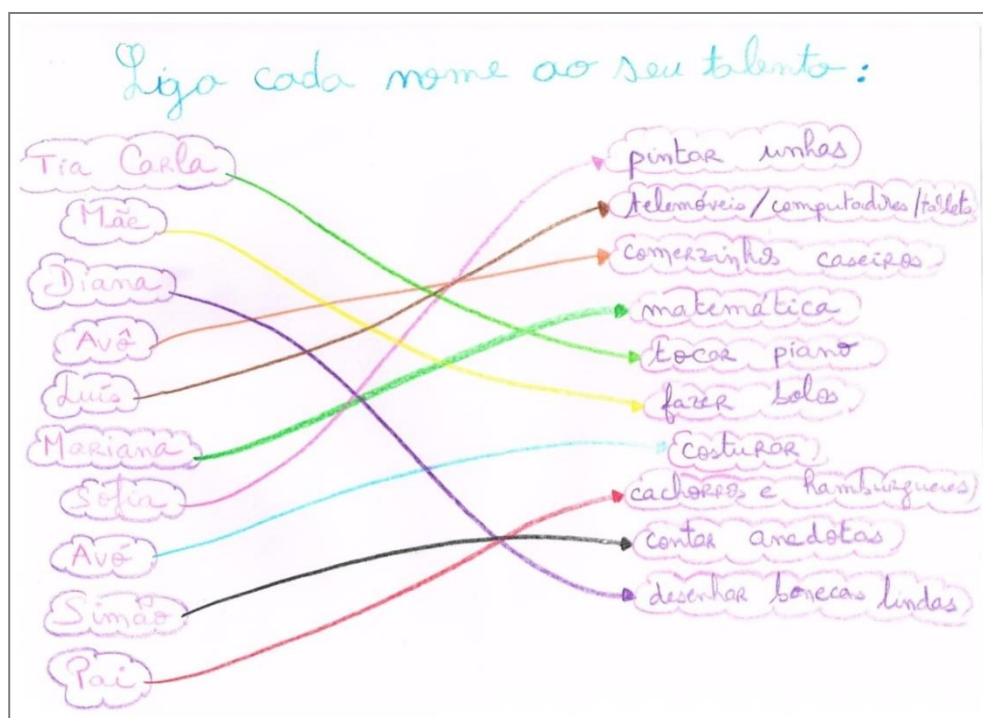 Liga cada nome ao seu talento:
Tia Carla
Mãe
Diana
Avô
Luís
Mariana
Sofia
Avó
Simão
Pai
pintar unhas
telemóveis/computadores/tablets
comerzinhos caseiros
matemática
tocar piano
fazer bolos
costurar
cachorros e hamburgueres
contar anedotas
desenhar bonecas lindas